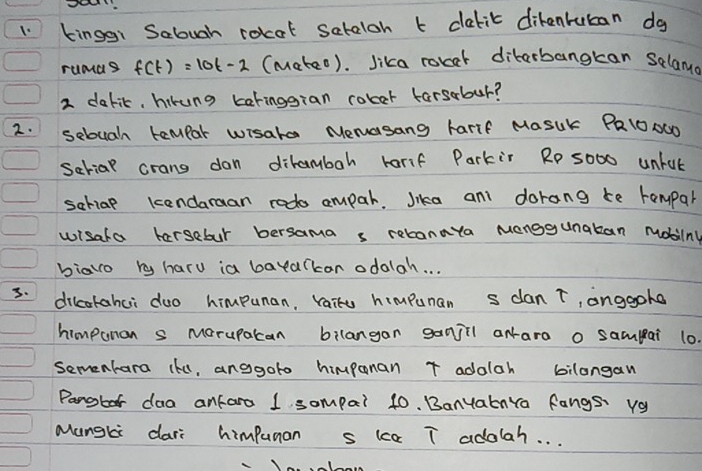 Soal!
1. tinggi Sebuah roket Setelah t detik ditentukan dg
rumus f(t) = 10t - 2 (Meter). Jika roket diterbangkan Selama
2 detik, hitung ketinggian roket tersebut?
2. Sebuah tempat wisata Memasang tarif Masuk Rp 10.000
Setiap orang dan ditambah tarif Parkir Rp 5000 untuk
setiap kendaraan roda empat. Jika ani datang ke tempat
wisata tersebut bersama 5 rekannya Menggunakan Mobilny
biaya yg haru ia bayarkan adalah...
3. diketahui dua himpunan, yaitu himpunan S dan T, anggota
himpunan S Merupakan bilangan ganjil antara 0 sampai 10.
Sementara itu, anggota himpunan T adalah bilangan
Pangkat dua antara 1 sampai 10. Banyaknya fungsi yg
Mungki dari himpunan S ke T adalah...